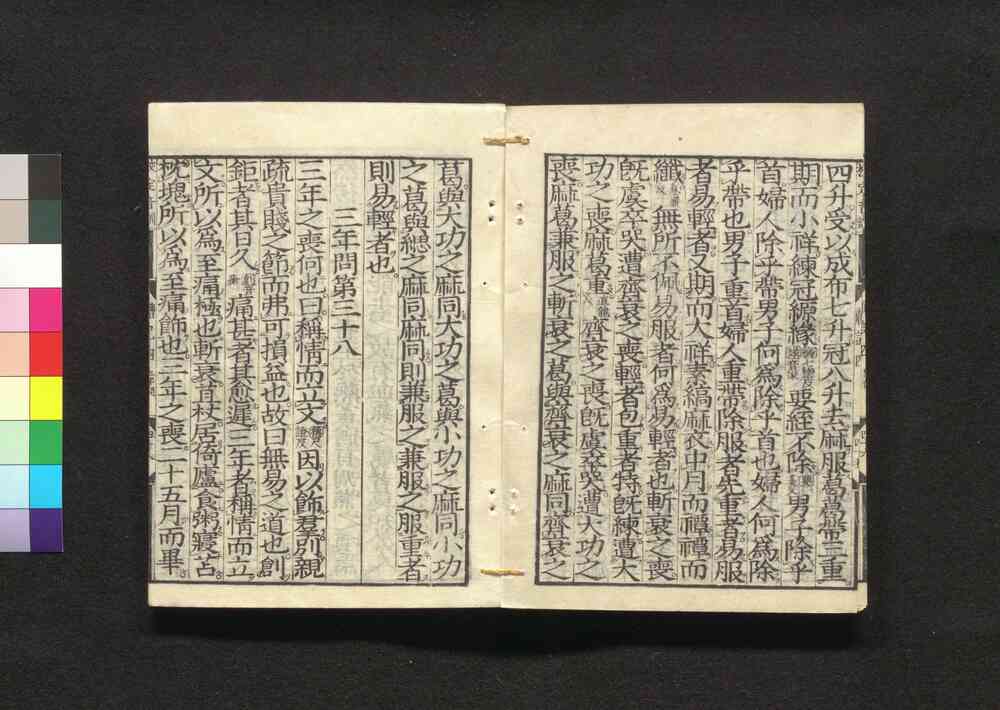 四升受以成布七升冠八升去麻服葛葛帶三重
期而小祥練冠縓緣要絰不除男子除乎
首婦人除乎帶男子何爲除乎首也婦人何爲除
乎帶也男子重首婦人重帶除服者先重者易服
者易輕者又期而大祥素縞麻衣中月而禫禫而
纖無所不佩易服者何爲易輕者也斬衰之喪
旣虞卒哭遭齊衰之喪輕者包重者特旣練遭大
功之喪麻葛重齊衰之喪旣虞卒哭遭大功之
喪麻葛兼服之斬衰之葛與齊衰之麻同齊衰之
葛與大功之麻同大功之葛與小功之麻同小功
之葛與緦之麻同麻同則兼服之兼服之服重者
則易輕者也
三年問第三十八
三年之喪何也曰稱情而立文因以飾羣別親
疏貴賤之節而弗可損益也故曰無易之道也創
鉅者其日久痛甚者其愈遲三年者稱情而立
文所以爲至痛極也斬衰苴杖居倚廬食粥寢苫
枕塊所以爲至痛飾也三年之喪二十五月而畢